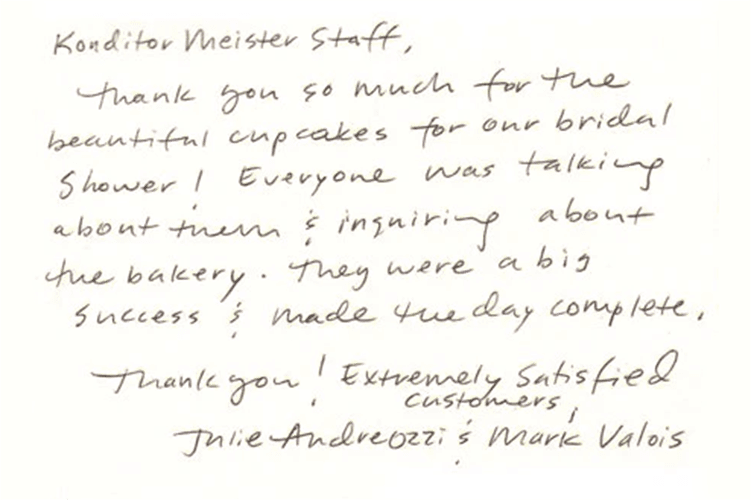 Konditor Meister Staff,
Thank you so much for the
beautiful cupcakes for our bridal
shower! Everyone was talking
about them & inquiring about
the bakery. They were a big
success & made the day complete.
Thank you! Extremely Satisfied
customers,
Julie Andreozzi & Mark Valois